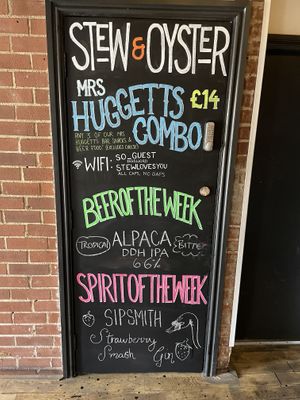 STEW & OYSTER
MRS
HUGGETTS £14
COMBO
ANY 3 OF OUR MRS
HUGGETTS BAR SNACKS &
BEER FOOD! (EXCLUDES CHEESE)
WIFI: SO_GUEST
PASSWORD
STEWLOVESYOU
ALL CAPS, NO GAPS
BEER OF THE WEEK
TROPICAL ALPACA BITTER
DDH IPA
6.6%
SPIRIT OF THE WEEK
SIPSMITH
Strawberry
Smash Gin